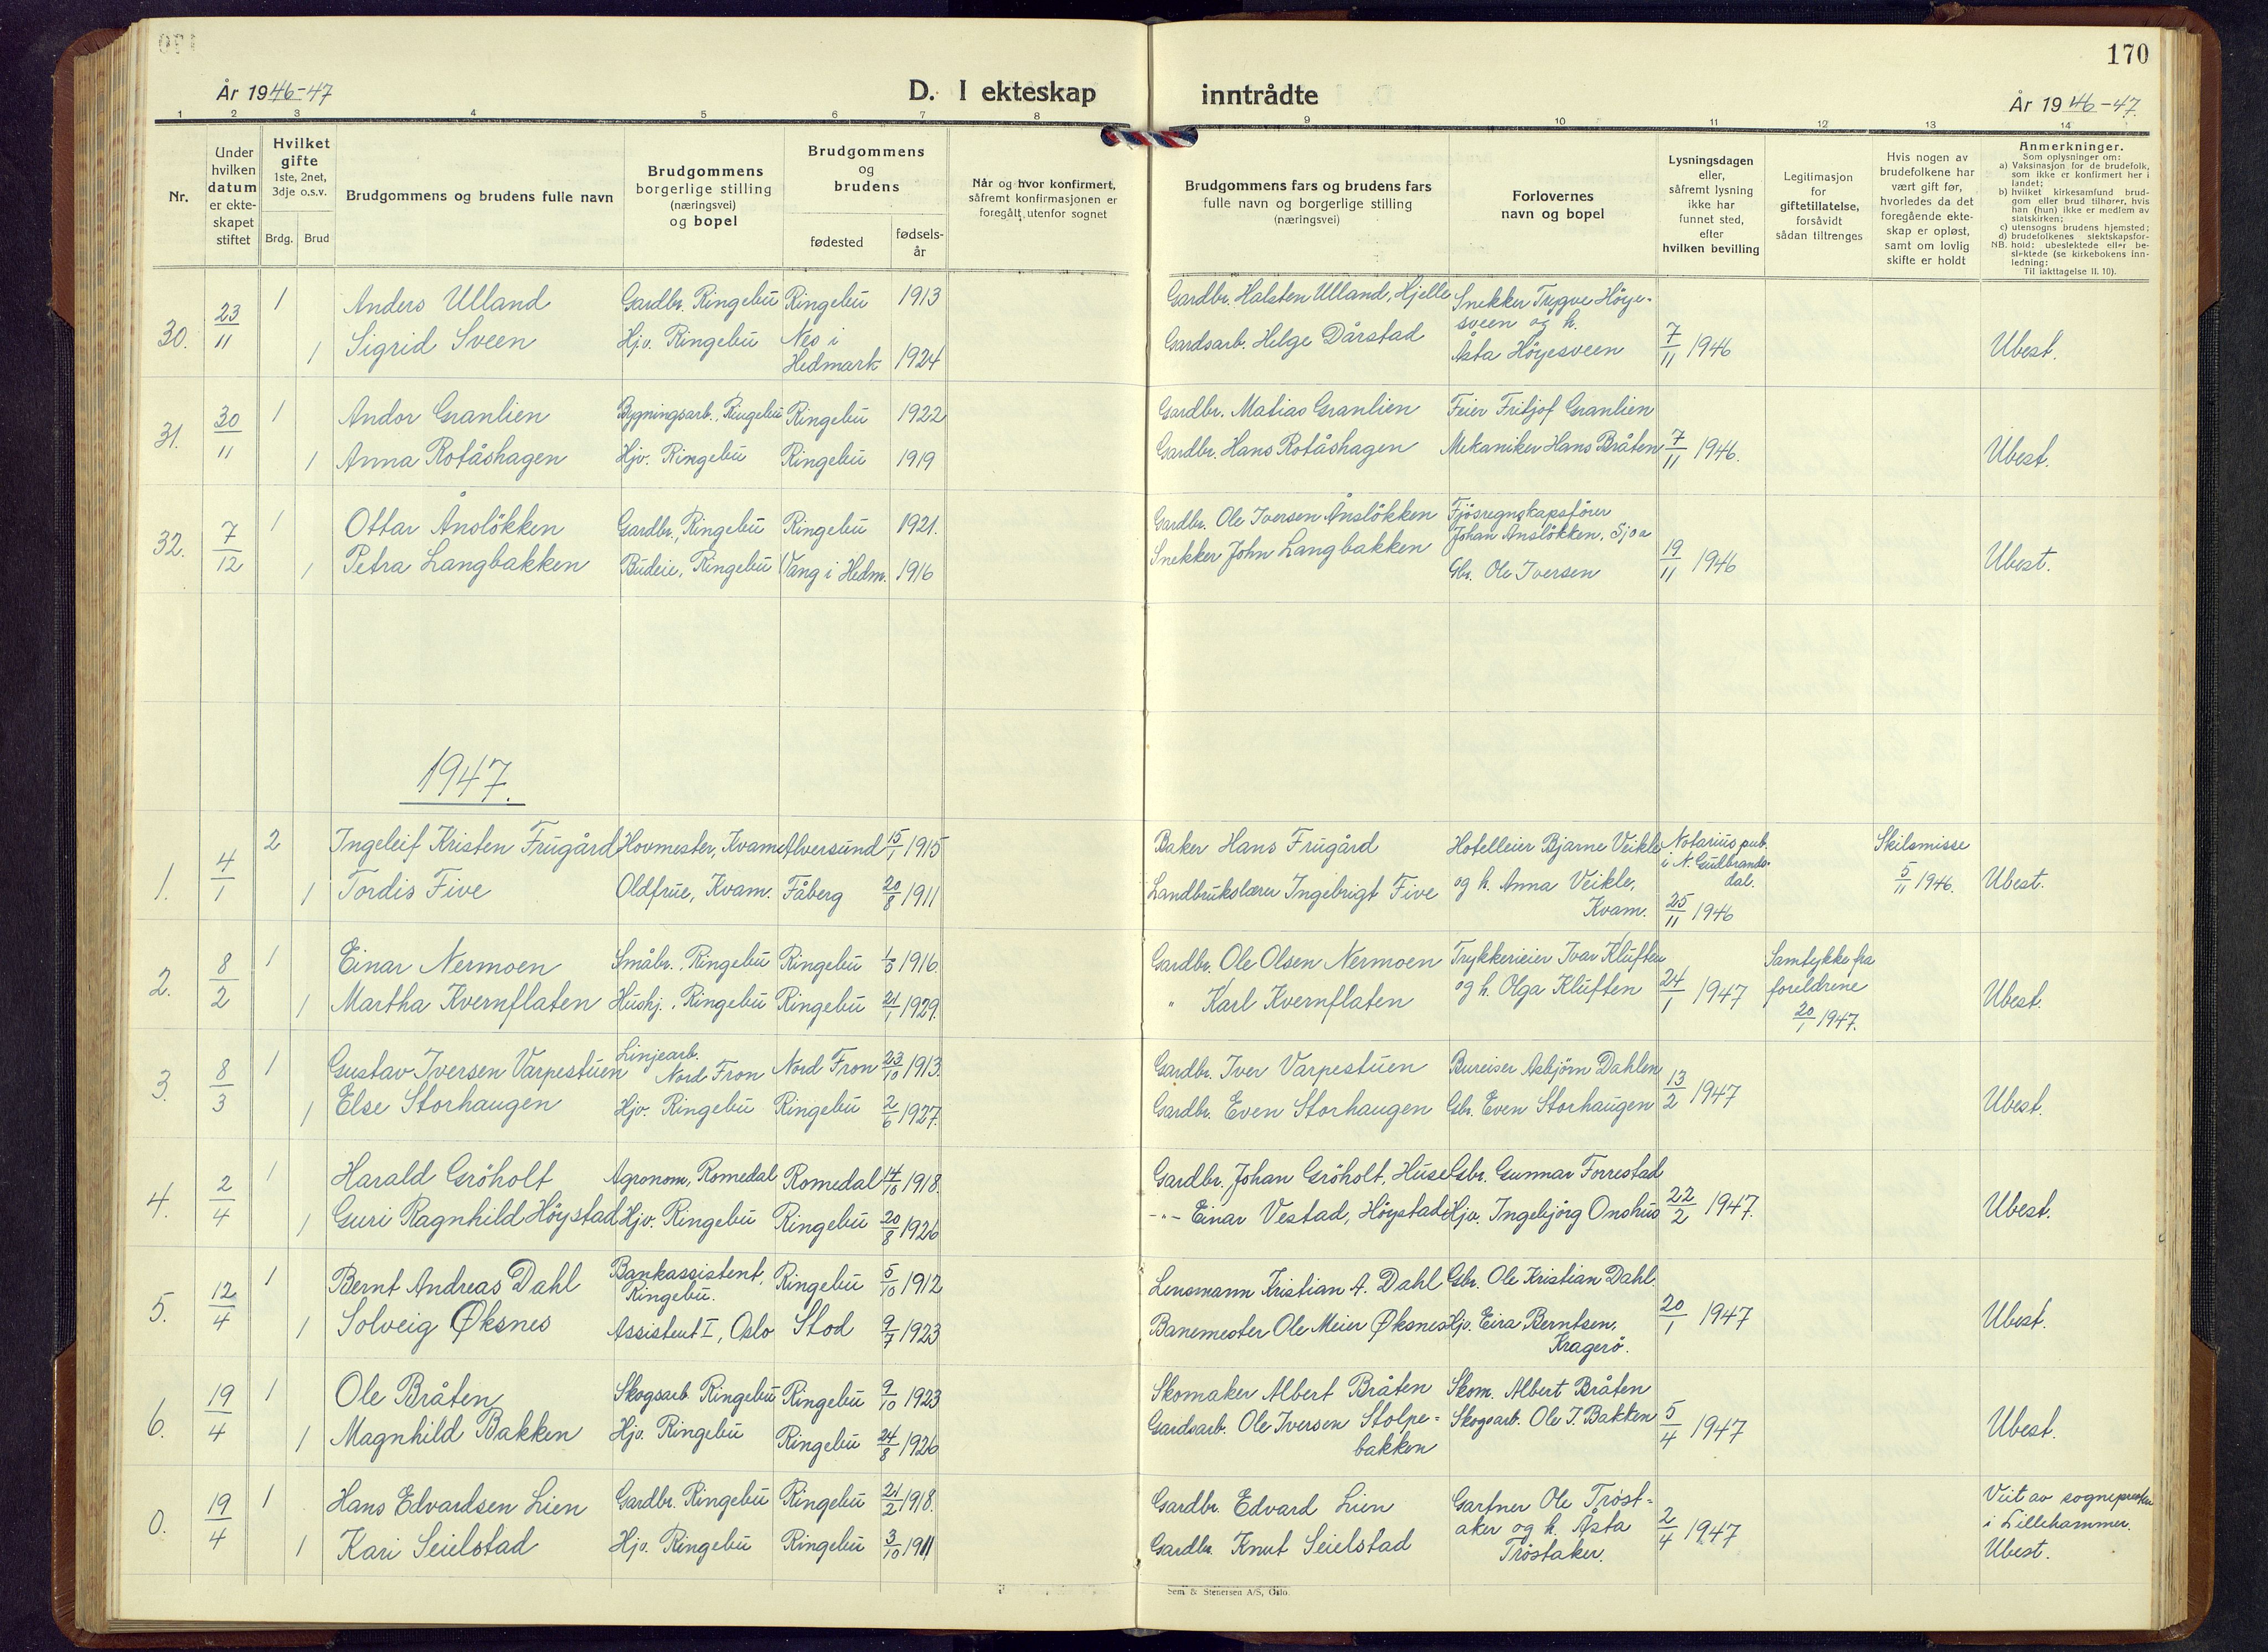 170
År 1946-47
D. I ekteskap inntrådte
År 1946-47.
1 2 3 4 5 6 7 8 9 10 11 12 13 14
Nr.
Under hvilken datum er ekte-skapet stiftet
Hvilket gifte 1ste, 2net, 3dje o.s.v.
Brdg. Brud
Brudgommens og brudens fulle navn
Brudgommens borgerlige stilling (næringsvei) og bopel
Brudgommens og brudens
fødested
fødsels-år
Når og hvor konfirmert, såfremt konfirmasjonen er foregått utenfor sognet
Brudgommens fars og brudens fars fulle navn og borgerlige stilling (næringsvei)
Forlovernes navn og bopel
Lysningsdagen eller, såfremt lysning ikke har funnet sted, efter hvilken bevilling
Legitimasjon for giftetillatelse, forsåvidt sådan tiltrenges
Hvis nogen av brudefolkene har vært gift før, hvorledes da det foregående ekte-skap er opløst, samt om lovlig skifte er holdt
Anmerkninger.
Som oplysninger om:
a) Vaksinasjon for de brudefolk, som ikke er konfirmert her i landet;
b) hvilket kirkesamfund brud-gom eller brud tilhører, hvis han (hun) ikke er medlem av statskirken;
c) utensogns brudens hjemsted;
d) brudefolkenes slektskapsfor-hold: ubeslektede eller be-slektede (se kirkebokens inn-ledning:
NB.
Til iakttagelse II. 10).
30. 23/11 1 Anders Ulland Gardbr. Ringebu Ringebu 1913 Gardbr. Halsten Ulland, Hjelle Snekker Trygve Høye-sveen og h.
1 Sigrid Sveen Hjv. Ringebu Nes i Hedmark 1924 Gardsarb. Helge Dårstad Åsta Høyesveen 7/11 1946 Ubest.
31. 30/11 1 Andor Granlien Bygningsarb., Ringebu Ringebu 1922 Gardbr. Matias Granlien Feier Fritjof Granlien
1 Anna Rotåshagen Hjv. Ringebu Ringebu 1919 Gardbr. Hans Rotåshagen Mekaniker Hans Bråten 7/11 1946. Ubest.
32. 7/12 1 Ottar Ånslökken Gardbr., Ringebu Ringebu 1921. Gardbr. Ole Iversen Ånslökken Fjösregnskapsförer Johan Ånslökken, Sjoa
1 Petra Langbakken Budeie, Ringebu Vang i Hedm. 1916 Snekker John Langbakken Gbr. Ole Iversen 19/11 1946 Ubest.
1947.
1. 4/1 2 Ingeleif Kristen Frugård Hovmester, Kvam Alversund 15/1 1915 Baker Hans Frugård Hotelleier Bjarne Veikle Notarius pub. i N. Gudbrands-dal. Skilsmisse
1 Tordis Five Oldfrue, Kvam. Fåberg 20/8 1911 Landbrukslærer Ingebrigt Five og h. Anna Veikle, Kvam. 25/11 1946 5/11 1946. Ubest.
2. 8/2 1 Einar Nermoen Småbr., Ringebu Ringebu 1/3 1916. Gardbr. Ole Olsen Nermoen Trykkerieier Ivar Kluften Samtykke fra
1 Martha Kvernflaten Hushj., Ringebu Ringebu 21/1 1929. " Karl Kvernflaten og h. Olga Kluften 24/1 1947 foreldrene 20/1 1947. Ubest.
3. 8/3 1 Gustav Iversen Varpestuen Linjearb. Nord Fron Nord Fron 23/10 1913. Gardbr. Iver Varpestuen Bureiser Asbjörn Dahlen
1 Else Storhaugen Hjv. Ringebu Ringebu 2/6 1927. Gardbr. Even Storhaugen Gbr. Even Storhaugen 13/2 1947 Ubest.
4. 2/4 1 Harald Gröholt Agronom, Romedal Romedal 14/10 1918. Gardbr. Johan Gröholt, Huse Gbr. Gunnar Forrestad
1 Guri Ragnhild Höystad Hjv. Ringebu Ringebu 20/8 1926 -"- Einar Vestad, Höystad Hjv. Ingebjörg Onshus 22/2 1947. Ubest.
5. 12/4 1 Bernt Andreas Dahl Bankassistent, Ringebu. Ringebu 5/10 1912 Lensmann Kristian A. Dahl Gbr. Ole Kristian Dahl
1 Solveig Øksnes Assistent I, Oslo Stod 9/7 1923 Banemester Ole Meier Øksnes Hjv. Eira Berntsen, Kragerö. 20/1 1947 Ubest.
6. 19/4 1 Ole Bråten Skogsarb. Ringebu Ringebu 9/10 1923 Skomaker Albert Bråten Skom. Albert Bråten
1 Magnhild Bakken Hjv. Ringebu Ringebu 24/8 1926 Gardsarb. Ole Iversen Stolpe-bakken Skogsarb. Ole I. Bakken 5/4 1947 Ubest.
0. 19/4 1 Hans Edvardsen Lien Gardbr. Ringebu Ringebu 21/2 1918. Gardbr. Edvard Lien Gartner Ole Tröst-aker og h. Åsta Tröstaker.
1 Kari Seielstad Hjv. Ringebu Ringebu 3/10 1911 Gardbr. Knut Seielstad 2/4 1947 Viet av sognepresten i Lillehammer. Ubest.
Sem & Stenersen A/S, Oslo.